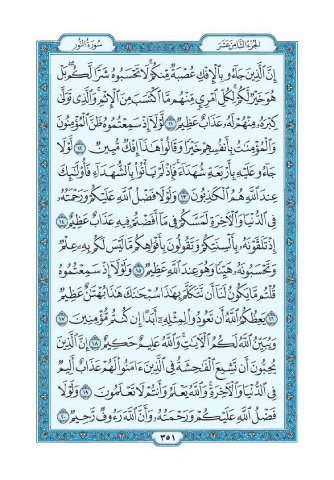 الجزء الثامن عشر
سورة النور
إِنَّ الَّذِينَ جَآءُو بِالْإِفْكِ عُصْبَةٌ مِّنكُمْ ۚ لَا تَحْسَبُوهُ شَرًّا لَّكُم ۖ بَلْ
هُوَ خَيْرٌ لَّكُمْ ۚ لِكُلِّ امْرِئٍ مِّنْهُم مَّا اكْتَسَبَ مِنَ الْإِثْمِ ۚ وَالَّذِي تَوَلَّىٰ
كِبْرَهُۥ مِنْهُمْ لَهُۥ عَذَابٌ عَظِيمٌ ١١ لَّوْلَآ إِذْ سَمِعْتُمُوهُ ظَنَّ الْمُؤْمِنُونَ
وَالْمُؤْمِنَٰتُ بِأَنفُسِهِمْ خَيْرًا وَقَالُوا هَٰذَآ إِفْكٌ مُّبِينٌ ١٢ لَّوْلَا
جَآءُو عَلَيْهِ بِأَرْبَعَةِ شُهَدَآءَ ۚ فَإِذْ لَمْ يَأْتُوا بِالشُّهَدَآءِ فَأُولَٰٓئِكَ
عِندَ اللَّهِ هُمُ الْكَٰذِبُونَ ١٣ وَلَوْلَا فَضْلُ اللَّهِ عَلَيْكُمْ وَرَحْمَتُهُۥ
فِي الدُّنْيَا وَالْآخِرَةِ لَمَسَّكُمْ فِي مَآ أَفَضْتُمْ فِيهِ عَذَابٌ عَظِيمٌ ١٤
إِذْ تَلَقَّوْنَهُۥ بِأَلْسِنَتِكُمْ وَتَقُولُونَ بِأَفْوَاهِكُم مَّا لَيْسَ لَكُم بِهِۦ عِلْمٌ
وَتَحْسَبُونَهُۥ هَيِّنًا وَهُوَ عِندَ اللَّهِ عَظِيمٌ ١٥ وَلَوْلَآ إِذْ سَمِعْتُمُوهُ
قُلْتُم مَّا يَكُونُ لَنَآ أَن نَّتَكَلَّمَ بِهَٰذَا سُبْحَٰنَكَ هَٰذَا بُهْتَٰنٌ عَظِيمٌ
١٦ يَعِظُكُمُ اللَّهُ أَن تَعُودُوا لِمِثْلِهِۦٓ أَبَدًا إِن كُنتُم مُّؤْمِنِينَ ١٧
وَيُبَيِّنُ اللَّهُ لَكُمُ الْآيَٰتِ ۚ وَاللَّهُ عَلِيمٌ حَكِيمٌ ١٨ إِنَّ الَّذِينَ
يُحِبُّونَ أَن تَشِيعَ الْفَٰحِشَةُ فِي الَّذِينَ ءَامَنُوا لَهُمْ عَذَابٌ أَلِيمٌ
فِي الدُّنْيَا وَالْآخِرَةِ ۚ وَاللَّهُ يَعْلَمُ وَأَنتُمْ لَا تَعْلَمُونَ ١٩ وَلَوْلَا
فَضْلُ اللَّهِ عَلَيْكُمْ وَرَحْمَتُهُۥ وَأَنَّ اللَّهَ رَءُوفٌ رَّحِيمٌ ٢٠
٣٥١